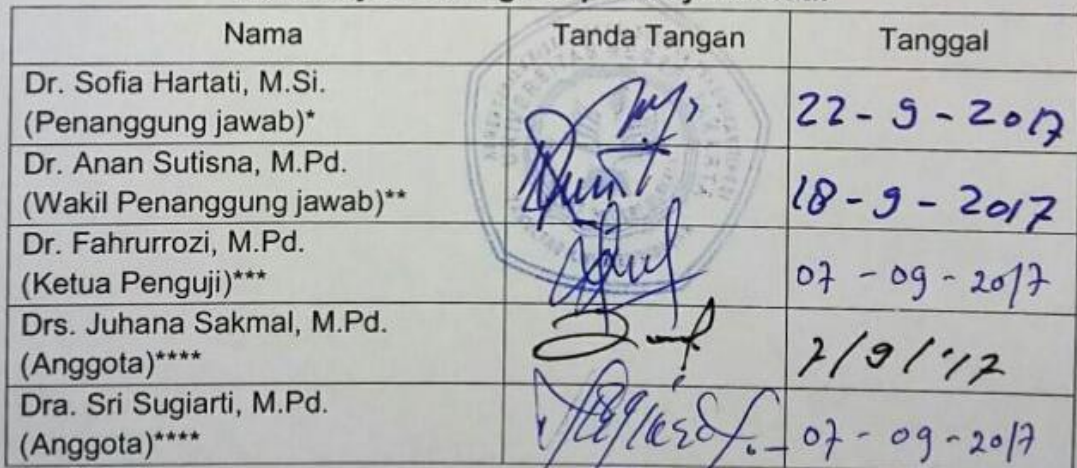 Nama Tanda Tangan Tanggal
Dr. Sofia Hartati, M.Si.
(Penanggung jawab)* 22 - 9 - 2017
Dr. Anan Sutisna, M.Pd.
(Wakil Penanggung jawab)** 18 - 9 - 2017
Dr. Fahrurrozi, M.Pd.
(Ketua Penguji)*** 07 - 09 - 2017
Drs. Juhana Sakmal, M.Pd.
(Anggota)**** 7/9/'17
Dra. Sri Sugiarti, M.Pd.
(Anggota)**** 07 - 09 - 2017